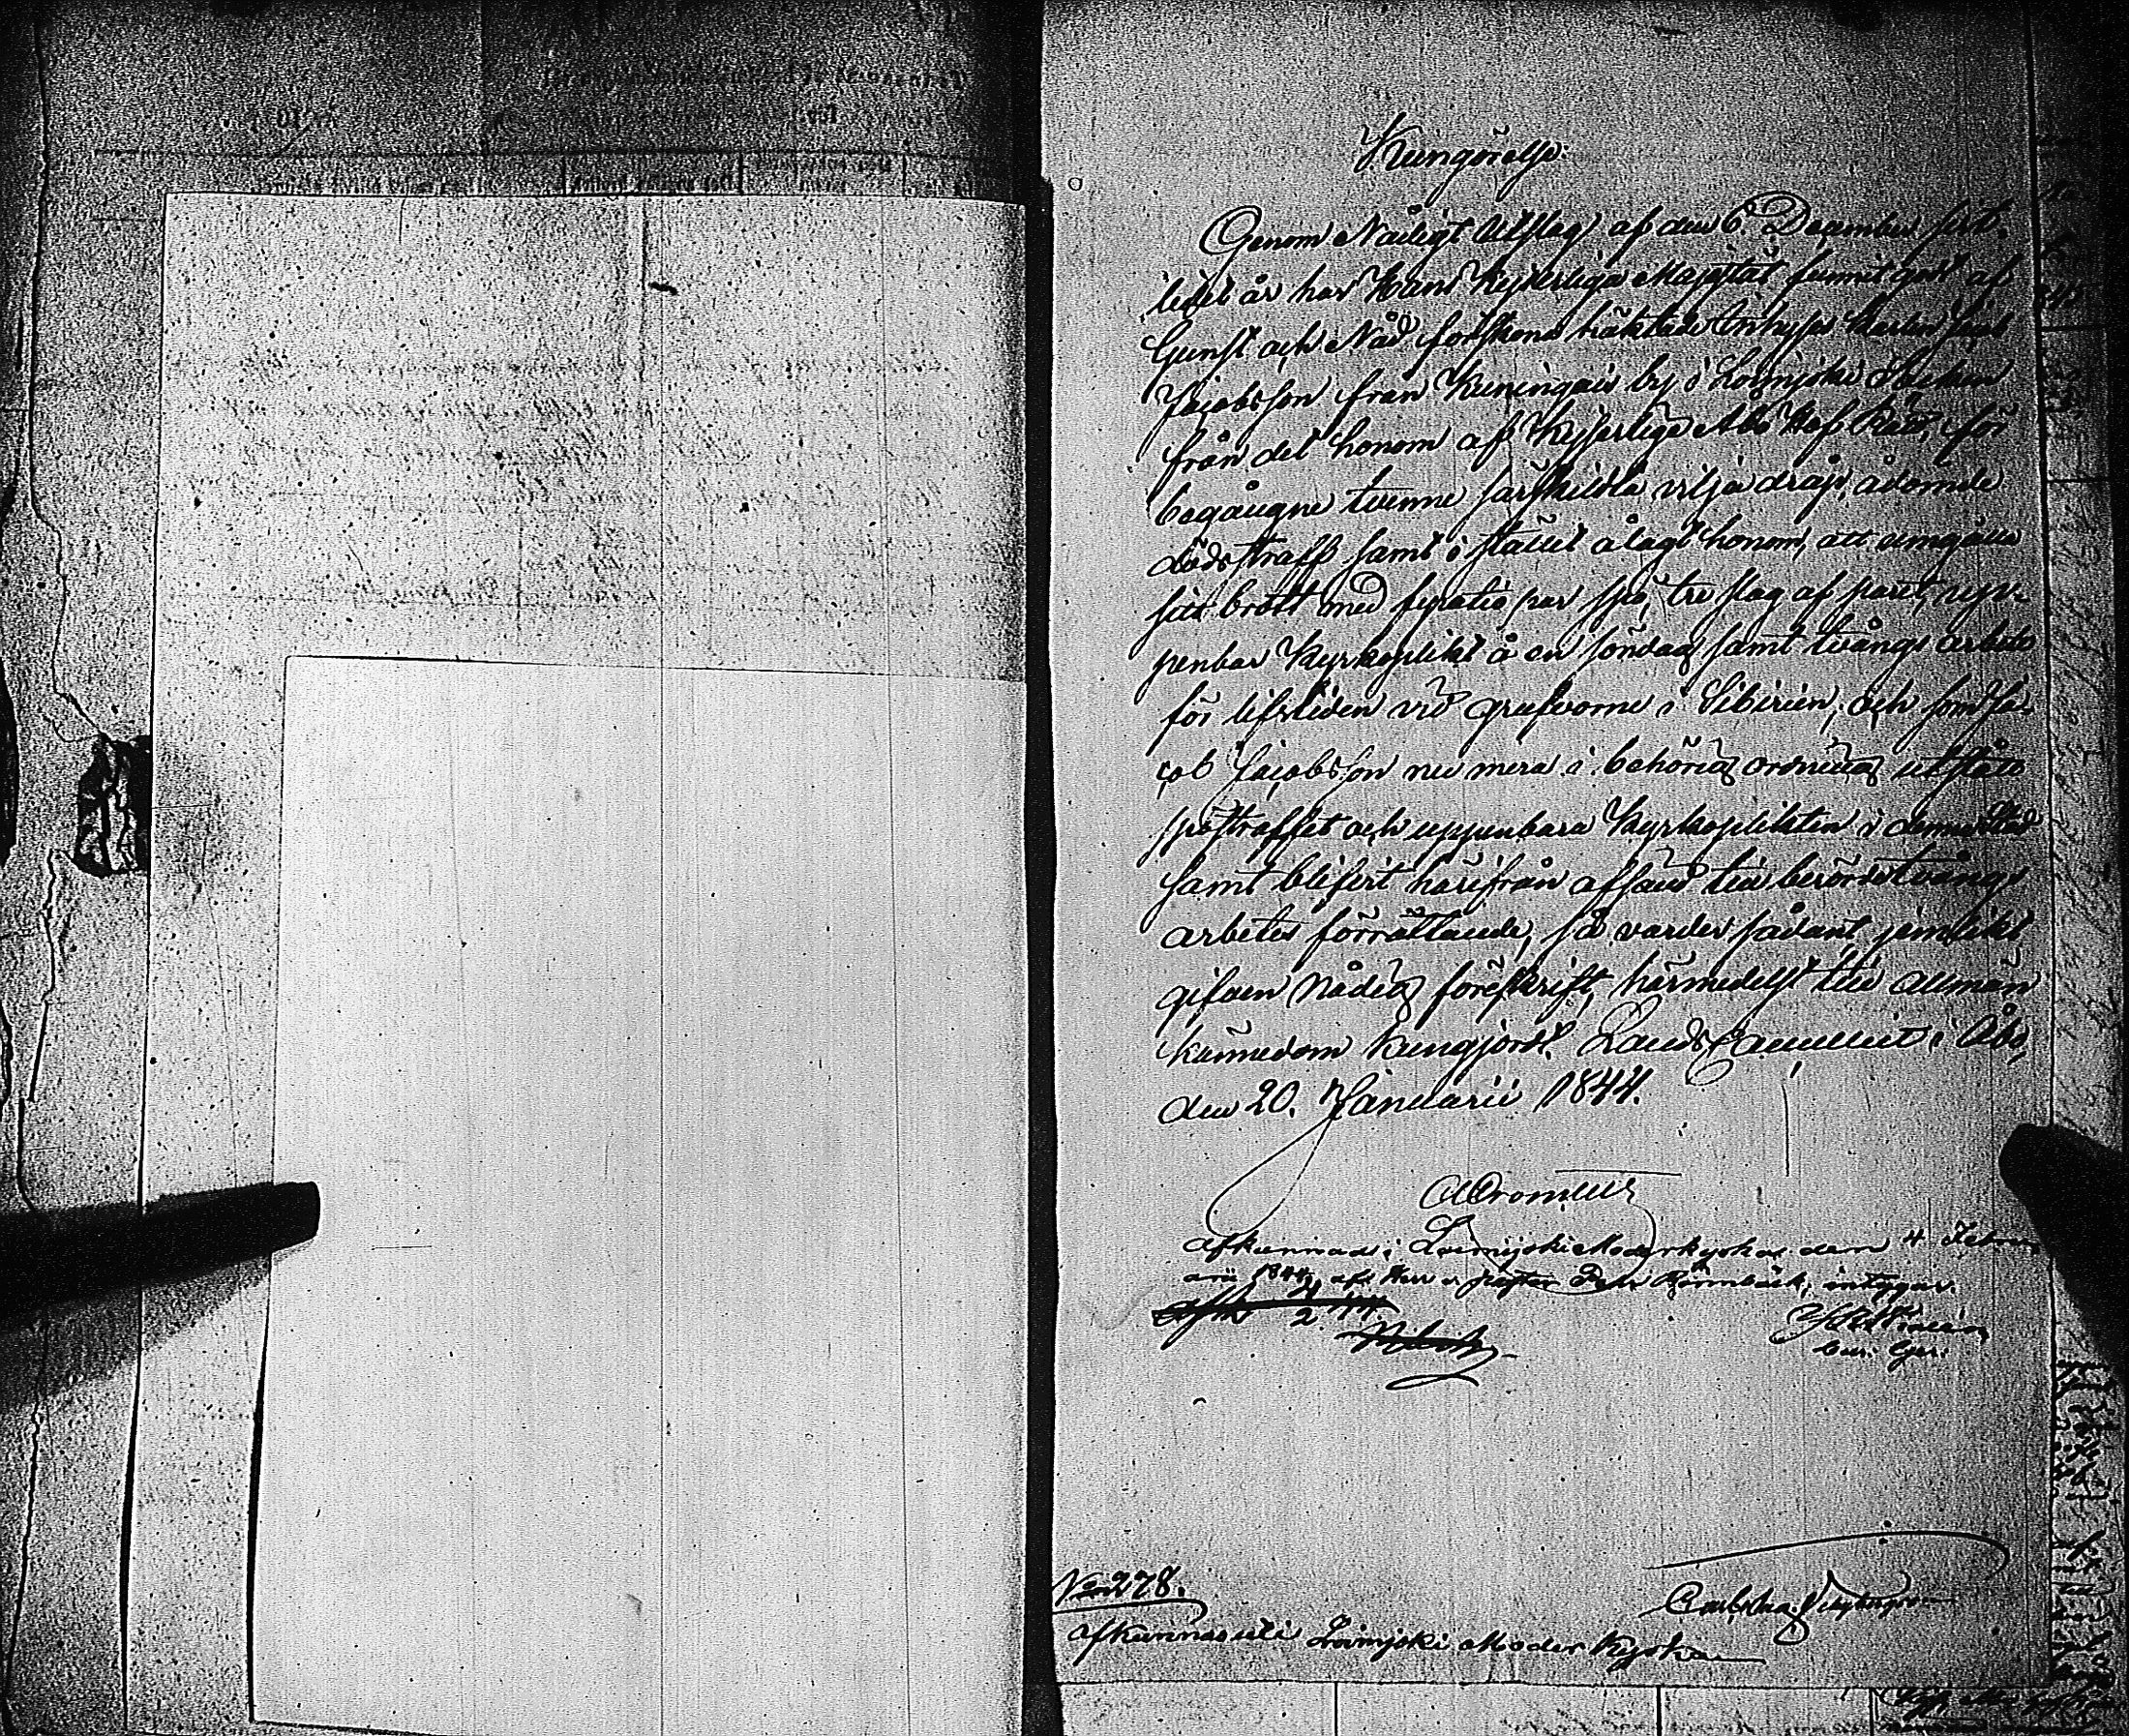 Kungörelse.
Genom Nådigt Utslag af den 6 December sist-
lidet år har Hans Kejserliga Majestät funnit godt af
Gunst och Nåd förskona häktade Inhyses Karlen Jacob
Jacobsson från Kuningais by i Loimjoki Socken
från det honom af Kejserliga Åbo Hof Rätt, för
begångne tvenne särskilda vilja dråp, ådömde
dödsstraff samt i stället ålagt honom, att umgälla
sitt brott med fyratio par spö, tre slag af paret, up-
penbar Kyrkoplikt å en söndag samt tvångs arbete
för lifstiden vid grufvorne i Sibirien; och som Ja-
cob Jacobsson nu mera i behörig ordning utstått
spöstraffet och uppenbara Kyrkoplikten i denna Stad
samt blifvit härifrån afsänd till berörde tvångs
arbetes förrättande, så varder sådant, jemlikt
gifven nådig föreskrift, härmedelst till allmän
kännedom kungjordt. Lands Cancelliet i Åbo,
den 20. Januarii 1844.
afkunnad i Loimijoki Moderkyrka den 4 Febru-
arii 1844, af Herr intygar.
No 278.
afkunnas uti Loimjoki Moder Kyrka